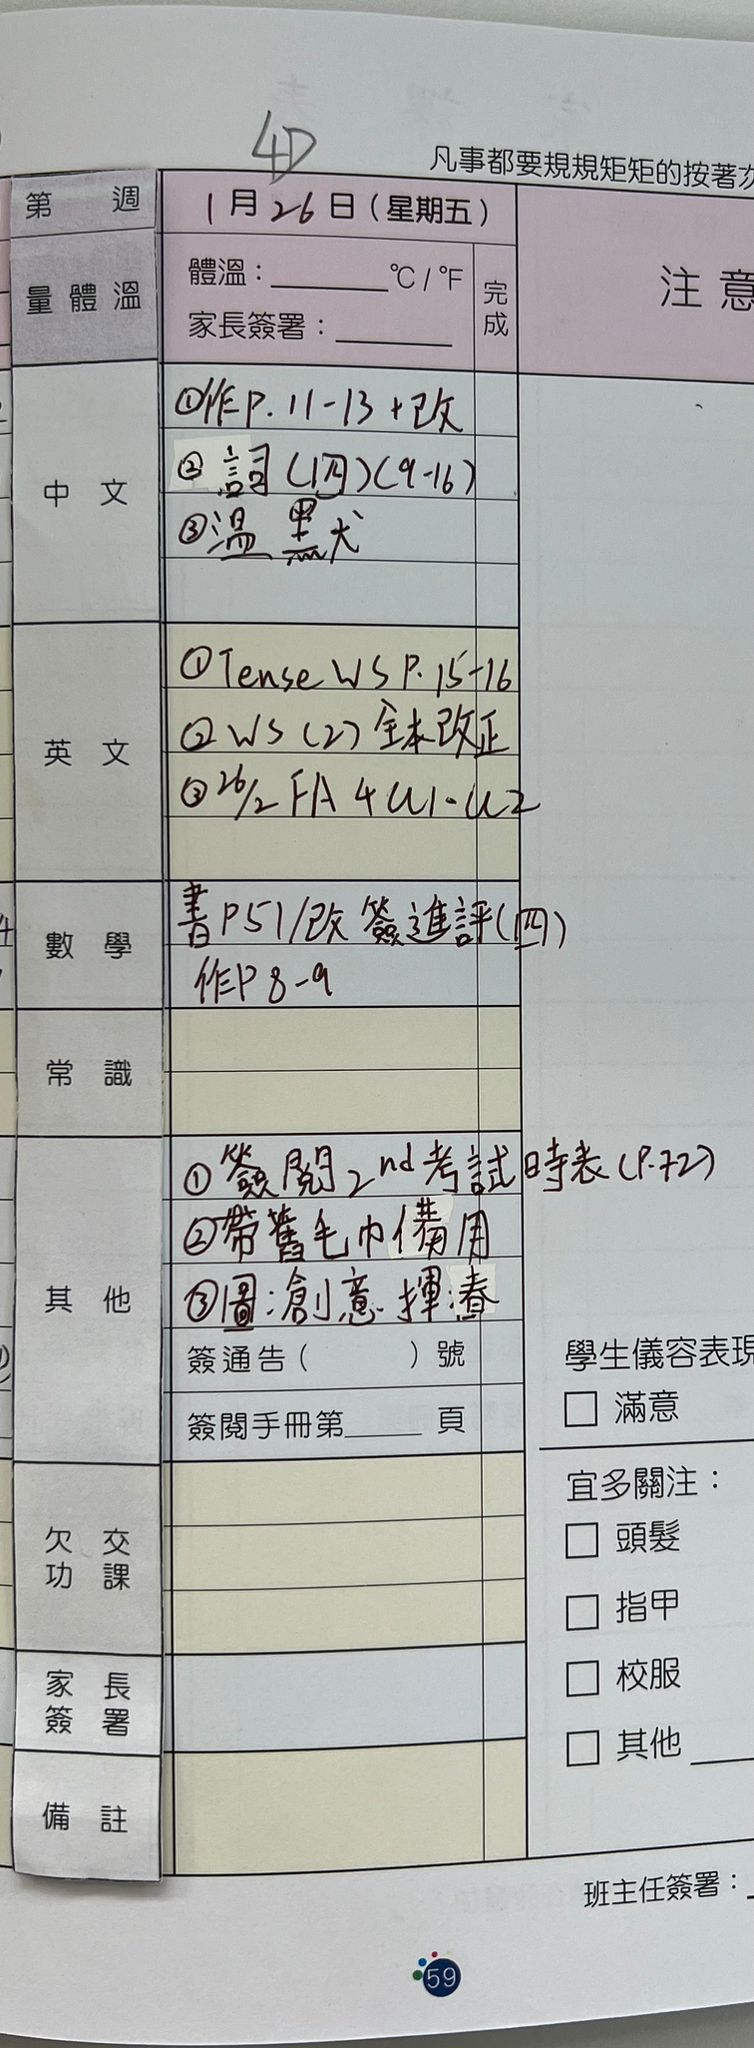 4D
凡事都要規規矩矩的按著次
第 週
1月26日(星期五)
注意
量體溫
體溫：______°C/°F
家長簽署：______
完成
中文
①作P.11-13+改
②詞(1四)(9-16)
③溫 黑犬
英文
①Tense WS P.15-16
②WS(2)全本改正
③26/2 FA4 U1-U2
數學
書P51/改 簽進評(四)
作P8-9
常識
其他
①簽閱2nd考試時表(P.72)
②帶舊毛巾備用
③圖:創意揮春
簽通告( )號
簽閱手冊第____頁
學生儀容表現
□ 滿意
宜多關注：
□ 頭髮
□ 指甲
□ 校服
□ 其他____
欠交
功課
家長
簽署
備註
班主任簽署：
59